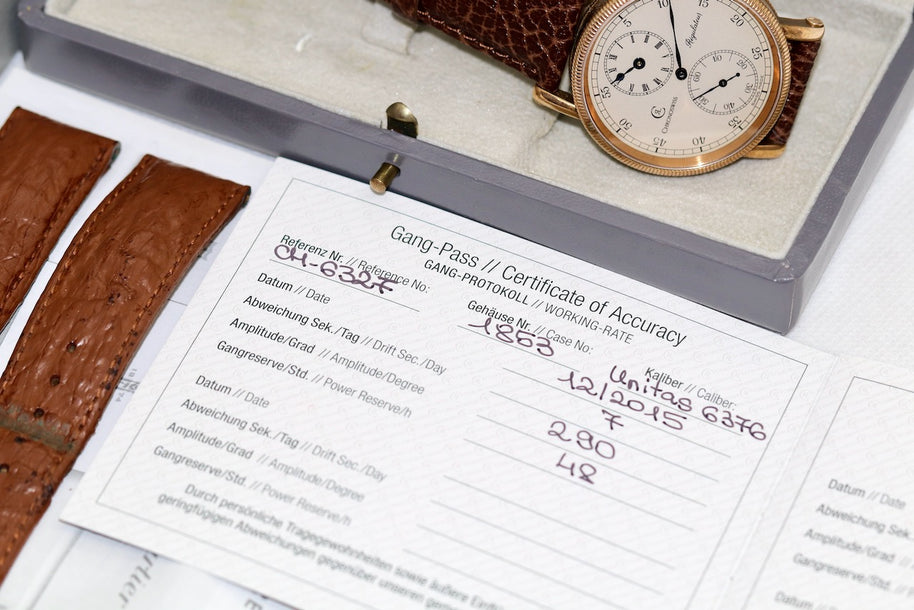 Régulateur
CHRONOSWISS
5
10
15
20
25
35
40
45
50
55
60
20
40
Gang-Pass // Certificate of Accuracy
GANG-PROTOKOLL // WORKING-RATE
Referenz Nr. // Reference No:
CH-6327
Gehäuse Nr. // Case No:
1853
Kaliber // Caliber:
Unitas 6376
Datum // Date
12/2015
Abweichung Sek./Tag // Drift Sec./Day
7
Amplitude/Grad // Amplitude/Degree
290
Gangreserve/Std. // Power Reserve/h
48
Datum // Date
Abweichung Sek./Tag // Drift Sec./Day
Amplitude/Grad // Amplitude/Degree
Gangreserve/Std. // Power Reserve/h
Durch persönliche Tragegewohnheiten sowie äußere
geringfügigen Abweichungen gegenüber unseren
Datum // Date
Abweichung Sek.
Amplitude/Grad //
Gangreserve/Std. //
Datum //